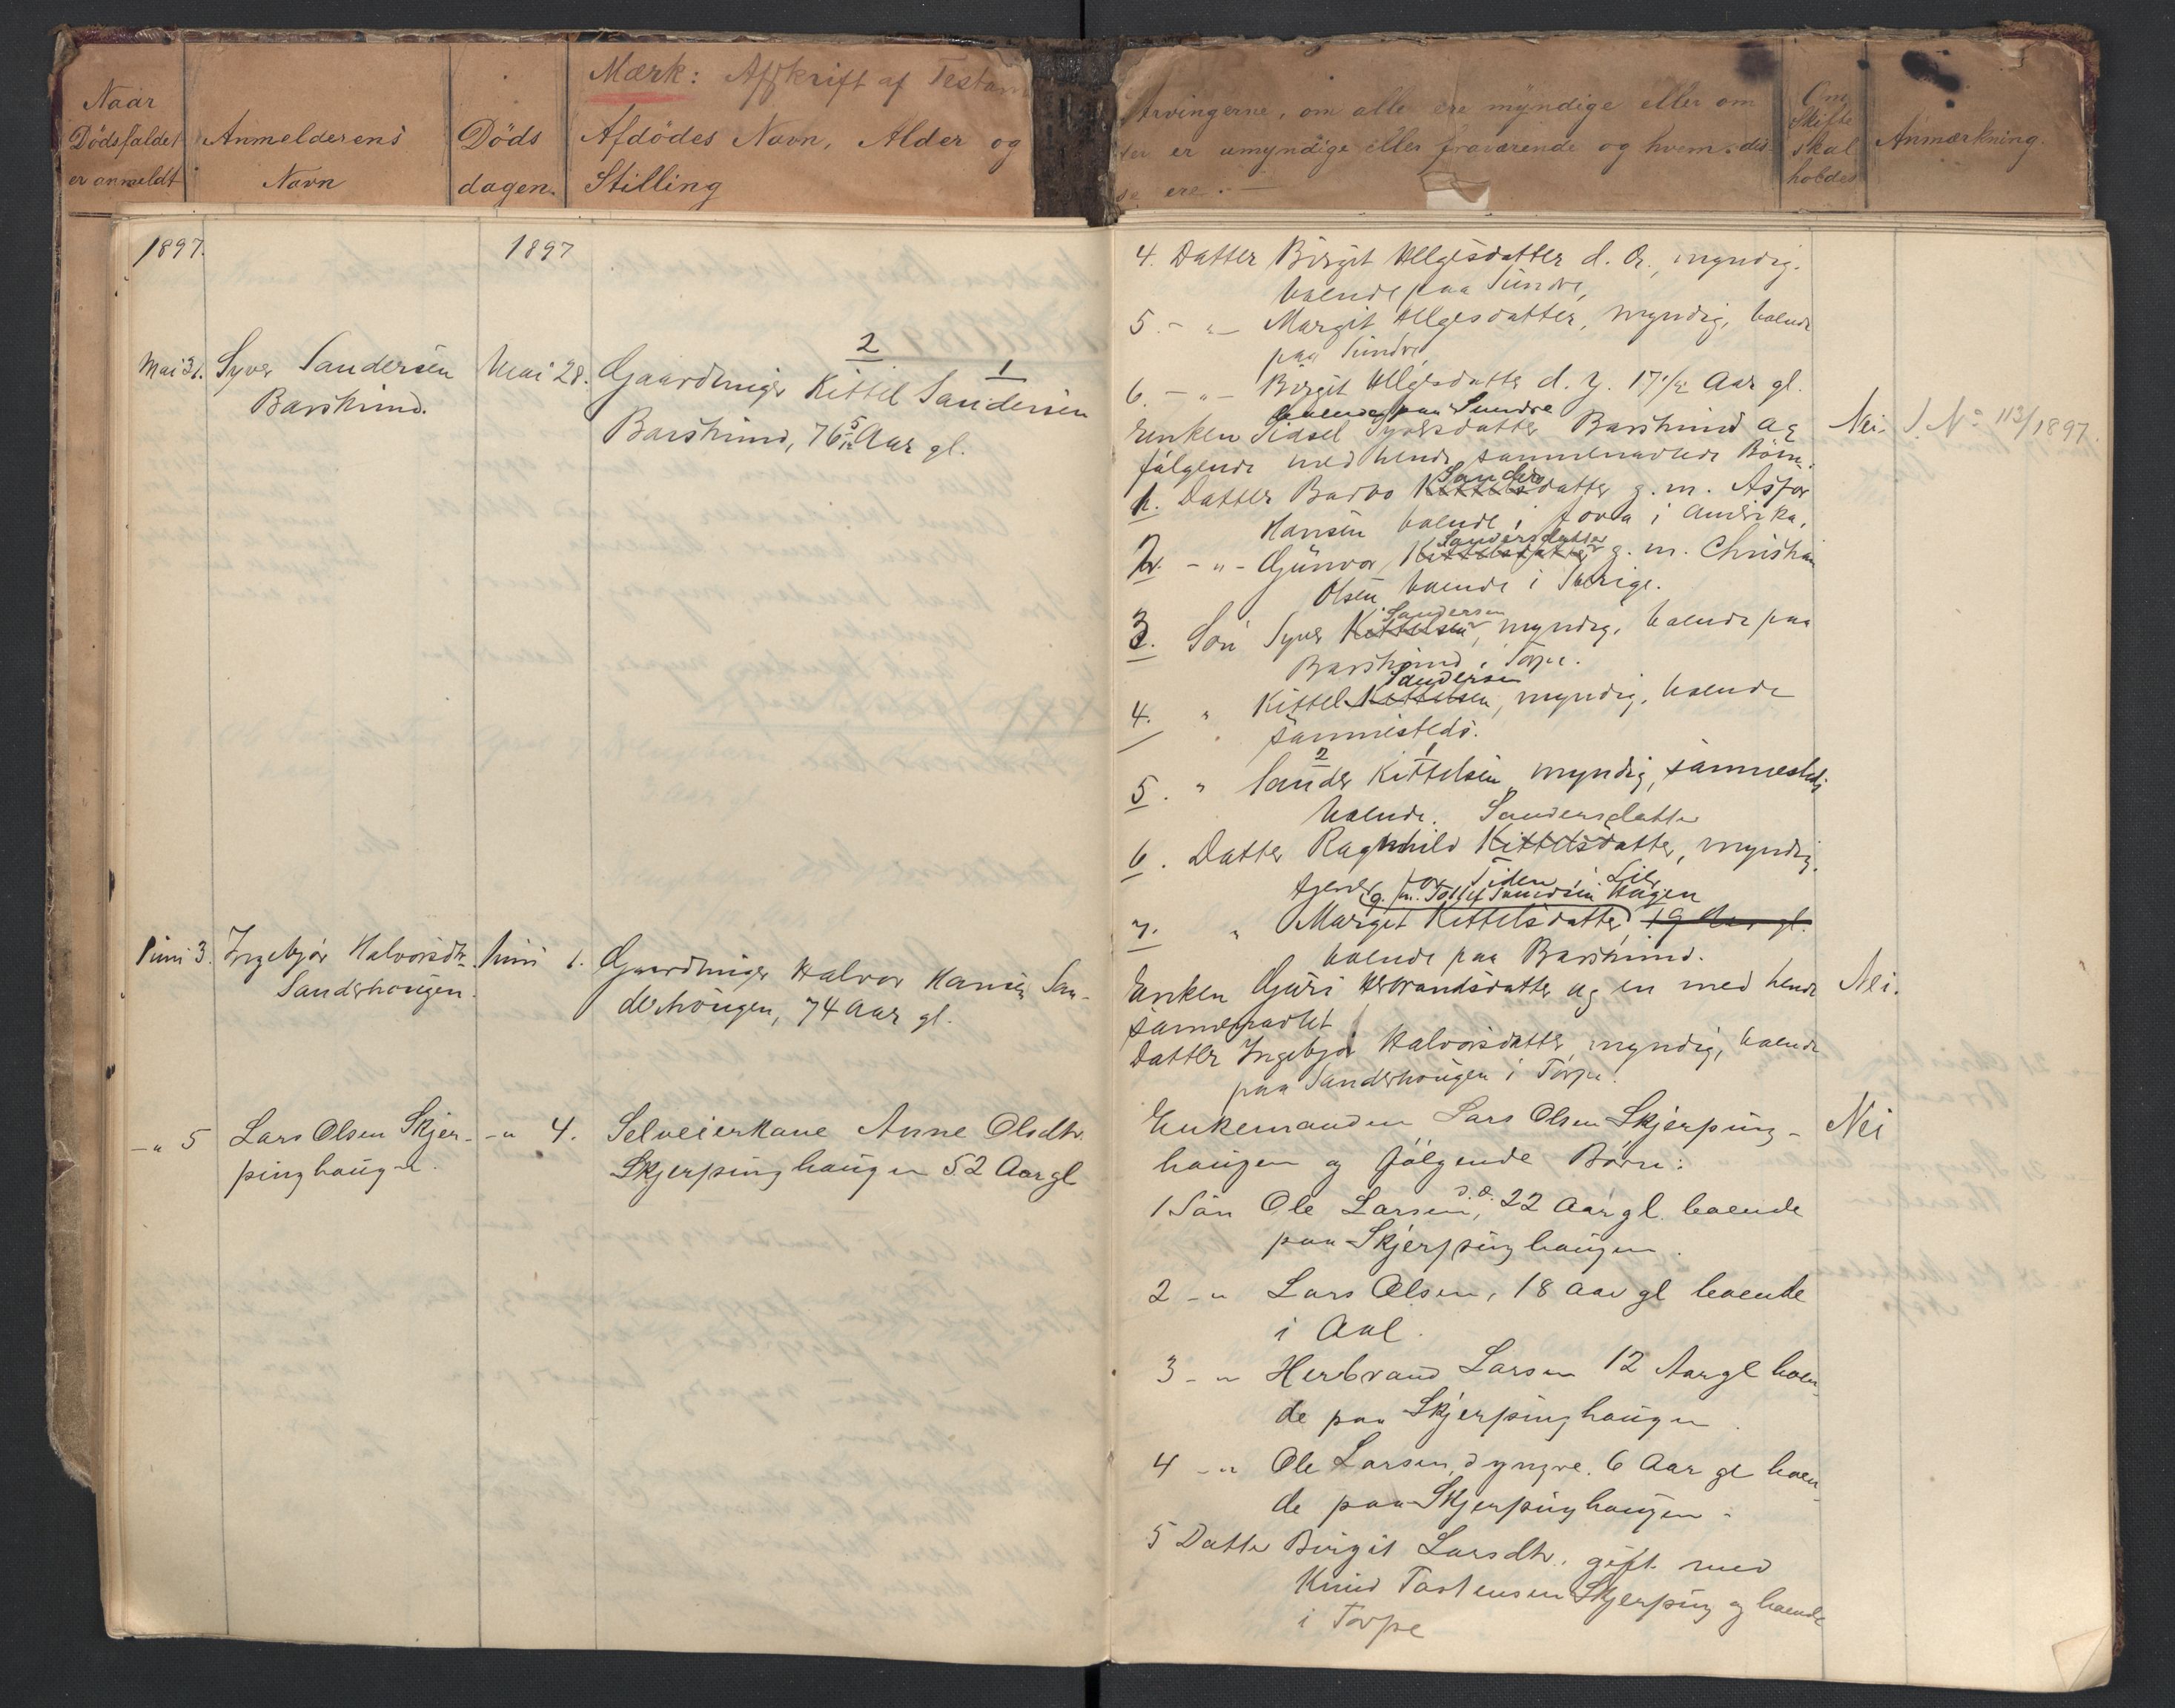 Mærk: Afskrift af Testam
Naar
Dödsfaldet
er anmeldt
Anmelderens
Navn
Döds
dagen.
Afdödes Navn, Alder og
Stilling
Arvingerne, om alle ere myndige eller om
der er umyndige eller fraværende og hvem dis-
se ere. —
Om
Skifte
skal
holdes
Anmærkning.
1897.
1897
Mai 31.
Syver Sandersen
Barskrind.
Mai 28.
2 1
Gaardmager Kittel Sandersen
Barskrind, 76 5/12 Aar gl.
Juni 3.
Ingebjør Halvorsdtr.
Sanderhougen.
Juni 1.
Gaardmager Halvor Hansen San-
derhougen, 74 Aar gl.
-" 5
Lars Olsen Skjer-
pinghaugen.
-" 4.
Selveierkone Anne Olsdtr.
Skjerpinghaugen 52 Aar gl
4. Datter Birgit Helgesdatter d. Æ., myndig.
boende paa Sundre,
5. -"- Margit Helgesdatter, myndig, boende
paa Sundre,
6. -"- Birgit Helgesdatter d. y. 17 1/2 Aar gl.
boende paa Sundre
Enken Sidsel Syversdatter Barskrind og
Nei.
S. No 113/1897.
følgende med hende sammenavlede Börn:
1. Datter Barbo Kittelsdatter Sanders g. m. Asfor
Hansen boende i Iowa i Amerika.
2. -"- Gunvor Kittelsdatter Sandersdatter g. m. Christian
Olsen boende i Sverige.
3. Søn Syver Kittelsen Sandersen, myndig, boende paa
Barskrind i Torpe.
4. " Kittel Kittelsen Sandersen, myndig, boende
sammesteds.
2 1
5. " Sander Kittelsen myndig, sammesteds
boende. Sandersdatter
6. Datter Ragnhild Kittelsdatter, myndig,
tjener for Tiden i Lier
g. m. Tollef Haugen
7. " Margit Kittelsdatter, 19 Aar gl.
boende paa Barskrind.
Enken Guri Herbrandsdatter og en med hende
Nei.
sammenavlet
Datter Ingebjør Halvorsdatter, myndig, boende
paa Sanderhougen i Torpe.
Enkemanden Lars Olsen Skjerping-
Nei
haugen og følgende Børn:
1 Søn Ole Larsen, d. æ. 22 Aar gl. boende
paa Skjerpinghaugen.
2 -" Lars Olsen, 18 Aar gl boende
i Aal.
3 -" Herbrand Larsen 12 Aar gl boen-
de paa Skjerpinghaugen.
4 -" Ole Larsen, d yngre. 6 Aar gl boen-
de paa Skjerpinghaugen.
5 Datter Birgit Larsdtr. gift med
Knud Tostensen Skjerping og boende
i Torpe